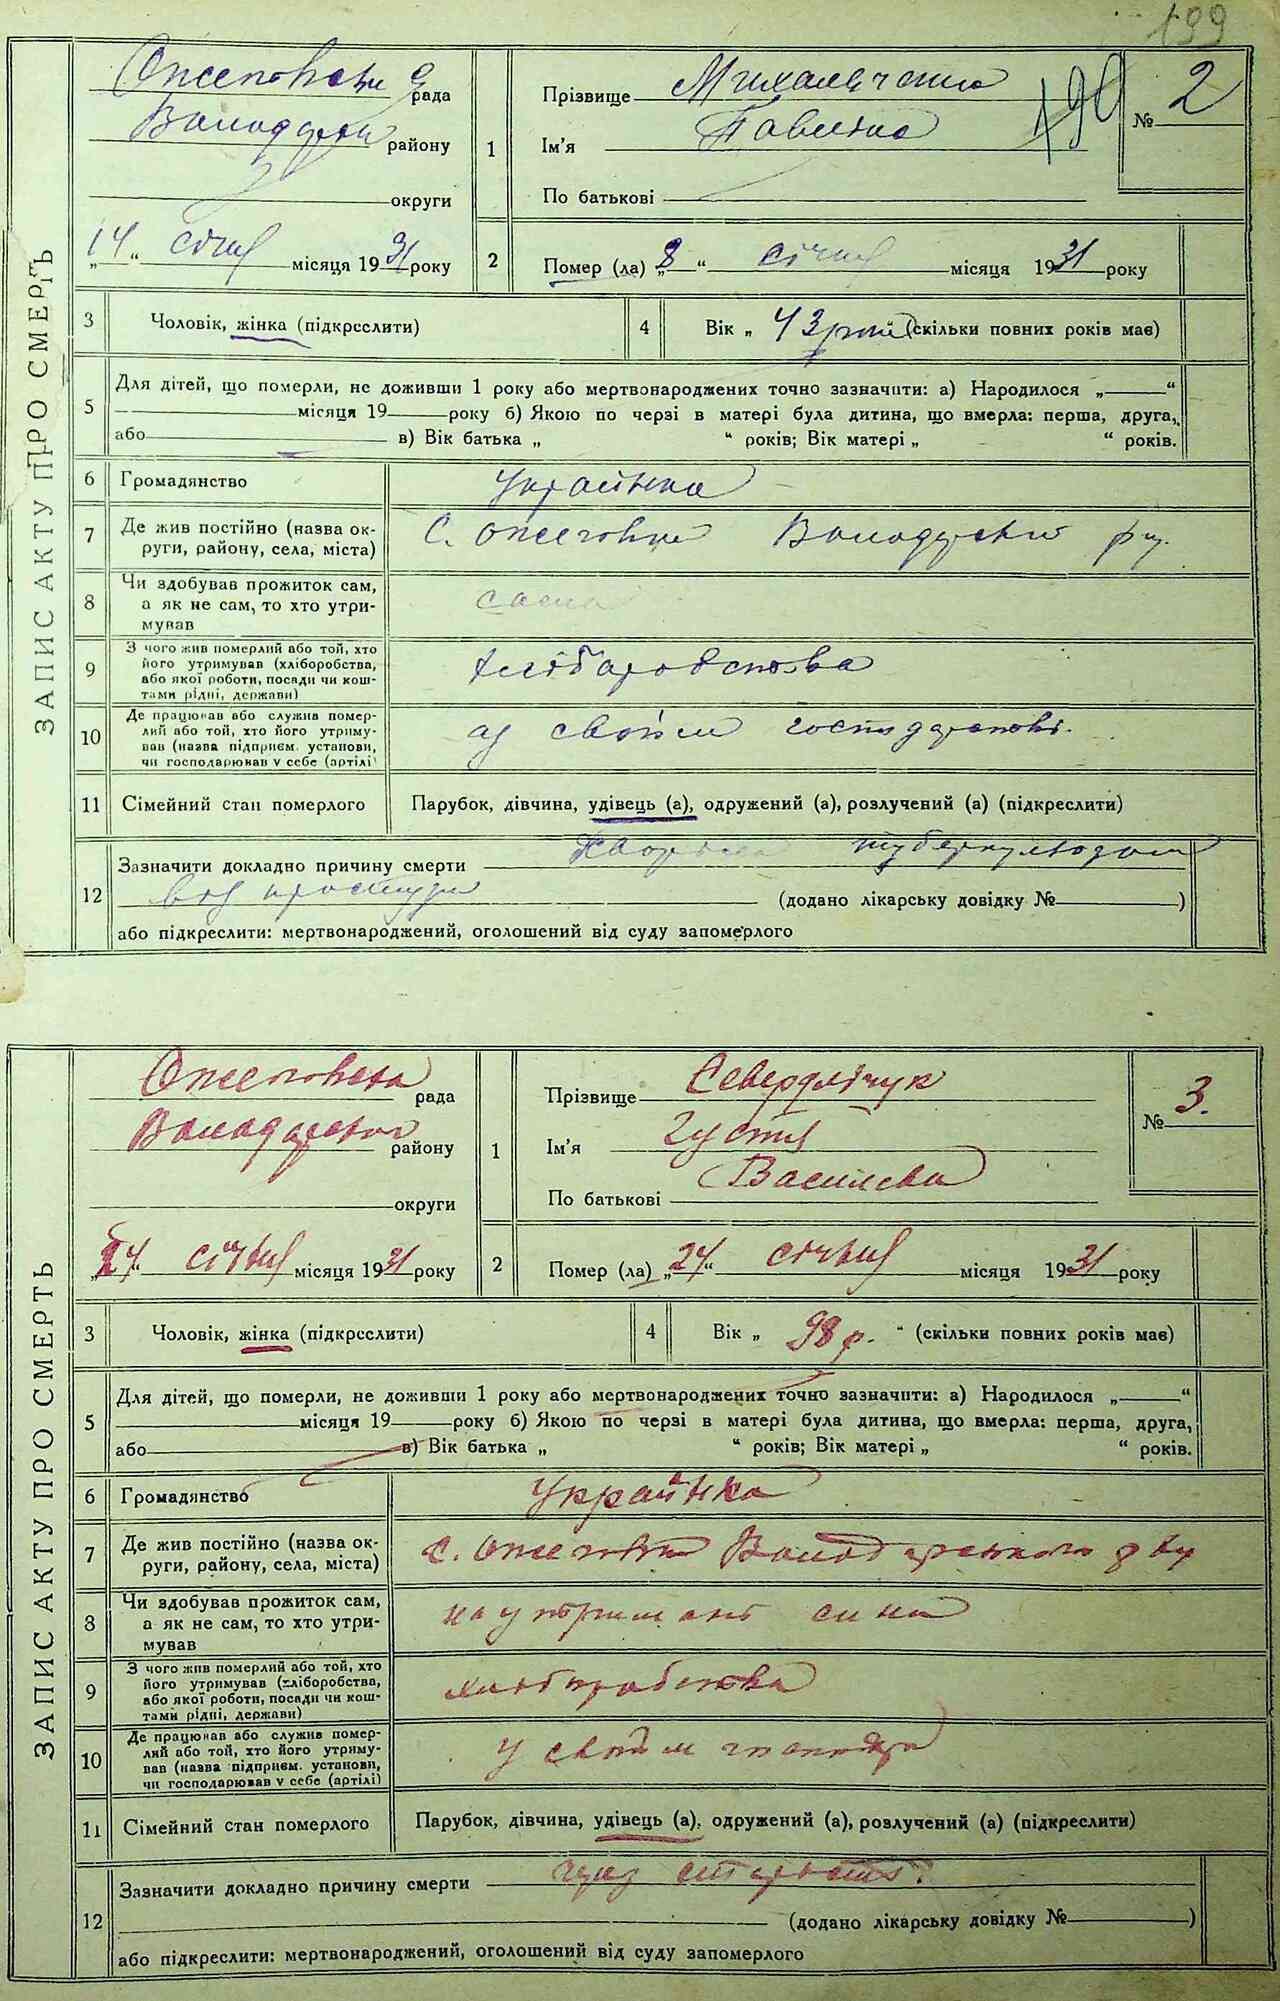 199
ЗАПИС АКТУ ПРО СМЕРТЬ
рада
району
округи
„14“ січня місяця 1931 року
1
Прізвище Михальченко
Ім'я Павлина
По батькові
190
№ 2
2
Помер (ла) „8“ січня місяця 1931 року
3 Чоловік, жінка (підкреслити)
4 Вік „ 43 роки (скільки повних років має)
5
Для дітей, що померли, не доживши 1 року або мертвонароджених точно зазначити: а) Народилося „ “
місяця 19 року б) Якою по черзі в матері була дитина, що вмерла: перша, друга,
або в) Вік батька „ “ років; Вік матері „ “ років.
6 Громадянство Українка
7 Де жив постійно (назва ок-
руги, району, села, міста)
с. Ожегівки Володарський
8 Чи здобував прожиток сам,
а як не сам, то хто утри-
мував
сама
9 З чого жив померлий або той, хто
його утримував (хліборобства,
або якої роботи, посади чи кош-
тами рідні, держави)
хліборобства
10 Де працював або служив помер-
лий або той, хто його утриму-
вав (назва підприєм. установи,
чи господарював у себе (артілі)
у своїм господарстві.
11 Сімейний стан померлого Парубок, дівчина, удівець (а), одружений (а), розлучений (а) (підкреслити)
12
Зазначити докладно причину смерти туберкульозом
від простуди (додано лікарську довідку № )
або підкреслити: мертвонароджений, оголошений від суду запомерлого
ЗАПИС АКТУ ПРО СМЕРТЬ
рада
району
округи
„24“ січня місяця 1931 року
1
Прізвище
Ім'я
По батькові Василева
№ 3.
2
Помер (ла) „24“ січня місяця 1931 року
3 Чоловік, жінка (підкреслити)
4 Вік „ 98 р. “ (скільки повних років має)
5
Для дітей, що померли, не доживши 1 року або мертвонароджених точно зазначити: а) Народилося „ “
місяця 19 року б) Якою по черзі в матері була дитина, що вмерла: перша, друга,
або в) Вік батька „ “ років; Вік матері „ “ років.
6 Громадянство Українка
7 Де жив постійно (назва ок-
руги, району, села, міста)
с. Ожегівки Володарського
8 Чи здобував прожиток сам,
а як не сам, то хто утри-
мував
на утримані сина
9 З чого жив померлий або той, хто
його утримував (хліборобства,
або якої роботи, посади чи кош-
тами рідні, держави)
хліборобства
10 Де працював або служив помер-
лий або той, хто його утриму-
вав (назва підприєм. установи,
чи господарював у себе (артілі)
у своїм
11 Сімейний стан померлого Парубок, дівчина, удівець (а), одружений (а), розлучений (а) (підкреслити)
12
Зазначити докладно причину смерти старость.
(додано лікарську довідку № )
або підкреслити: мертвонароджений, оголошений від суду запомерлого